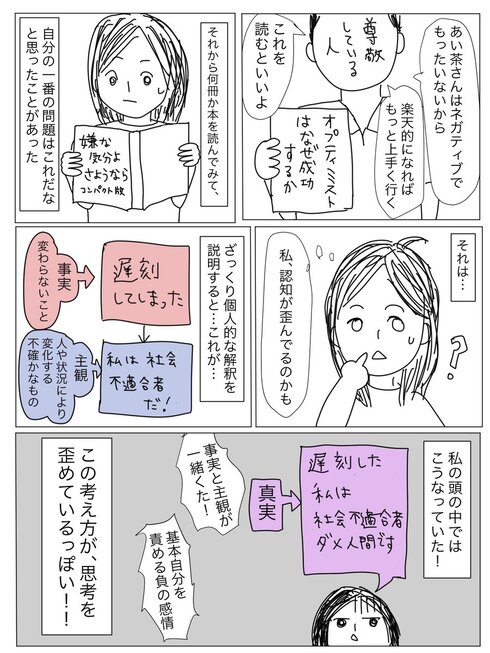 あい茶さんはネガティブで
もったいないから
楽天的になれば
もっと上手く行く
尊敬
している
人
これを
読むといいよ
オプティミスト
はなぜ成功
するか
それから何冊か本を読んでみて、
自分の一番の問題はこれだな
と思ったことがあった
嫌な
気分よ
さようなら
コンパクト版
それは…
?
私、認知が歪んでるのかも
ざっくり個人的な解釈を
説明すると…これが…
遅刻
してしまった
事実
変わらないこと
私は社会
不適合者
だ!
主観
人や状況により
変化する
不確かなもの
私の頭の中では
こうなっていた!
遅刻した
私は
社会不適合者
ダメ人間です
真実
事実と主観が
一緒くた!
基本自分を
責める負の感情
この考え方が、思考を
歪めているっぽい!!